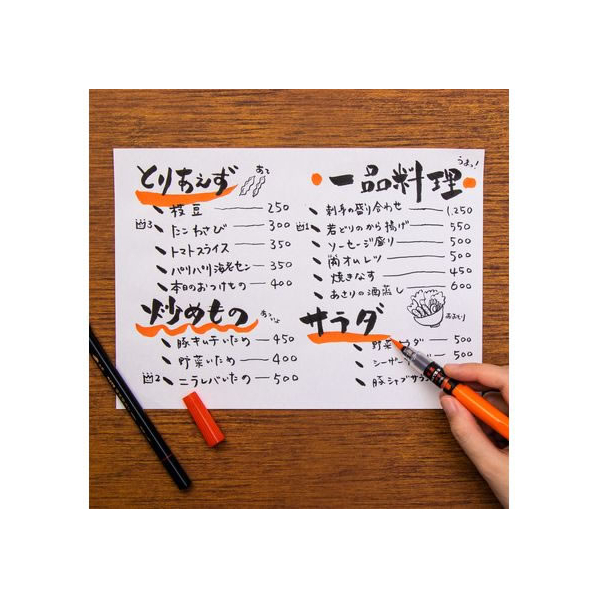 とりあえず
枝豆 250
凹3 たこわさび 300
トマトスライス 350
パリパリ海老セン 350
本日のおつけもの 400
炒めもの
豚キムチいため 450
野菜いため 400
凹2 ニラレバいため 500
うまっ!
一品料理
刺身の盛り合わせ 1,250
凹1 若どりのから揚げ 550
ソーセージ盛り 500
肉オムレツ 500
焼きなす 450
あさりの酒蒸し 600
サラダ
野菜サラダ 500
シーザー 500
豚シャブサラダ